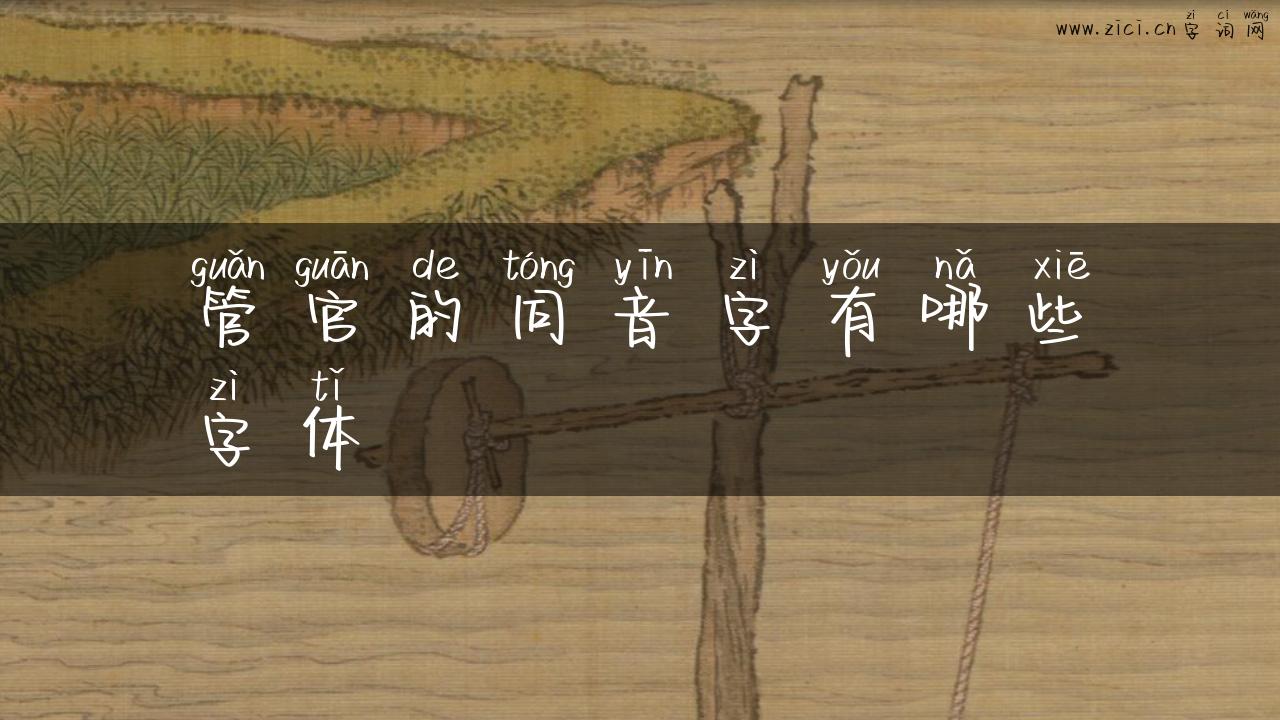 zì cí wǎng
www.zici.cn 字词网
guǎn guān de tóng yīn zì yǒu nǎ xiē
管官的同音字有哪些
zì tǐ
字体